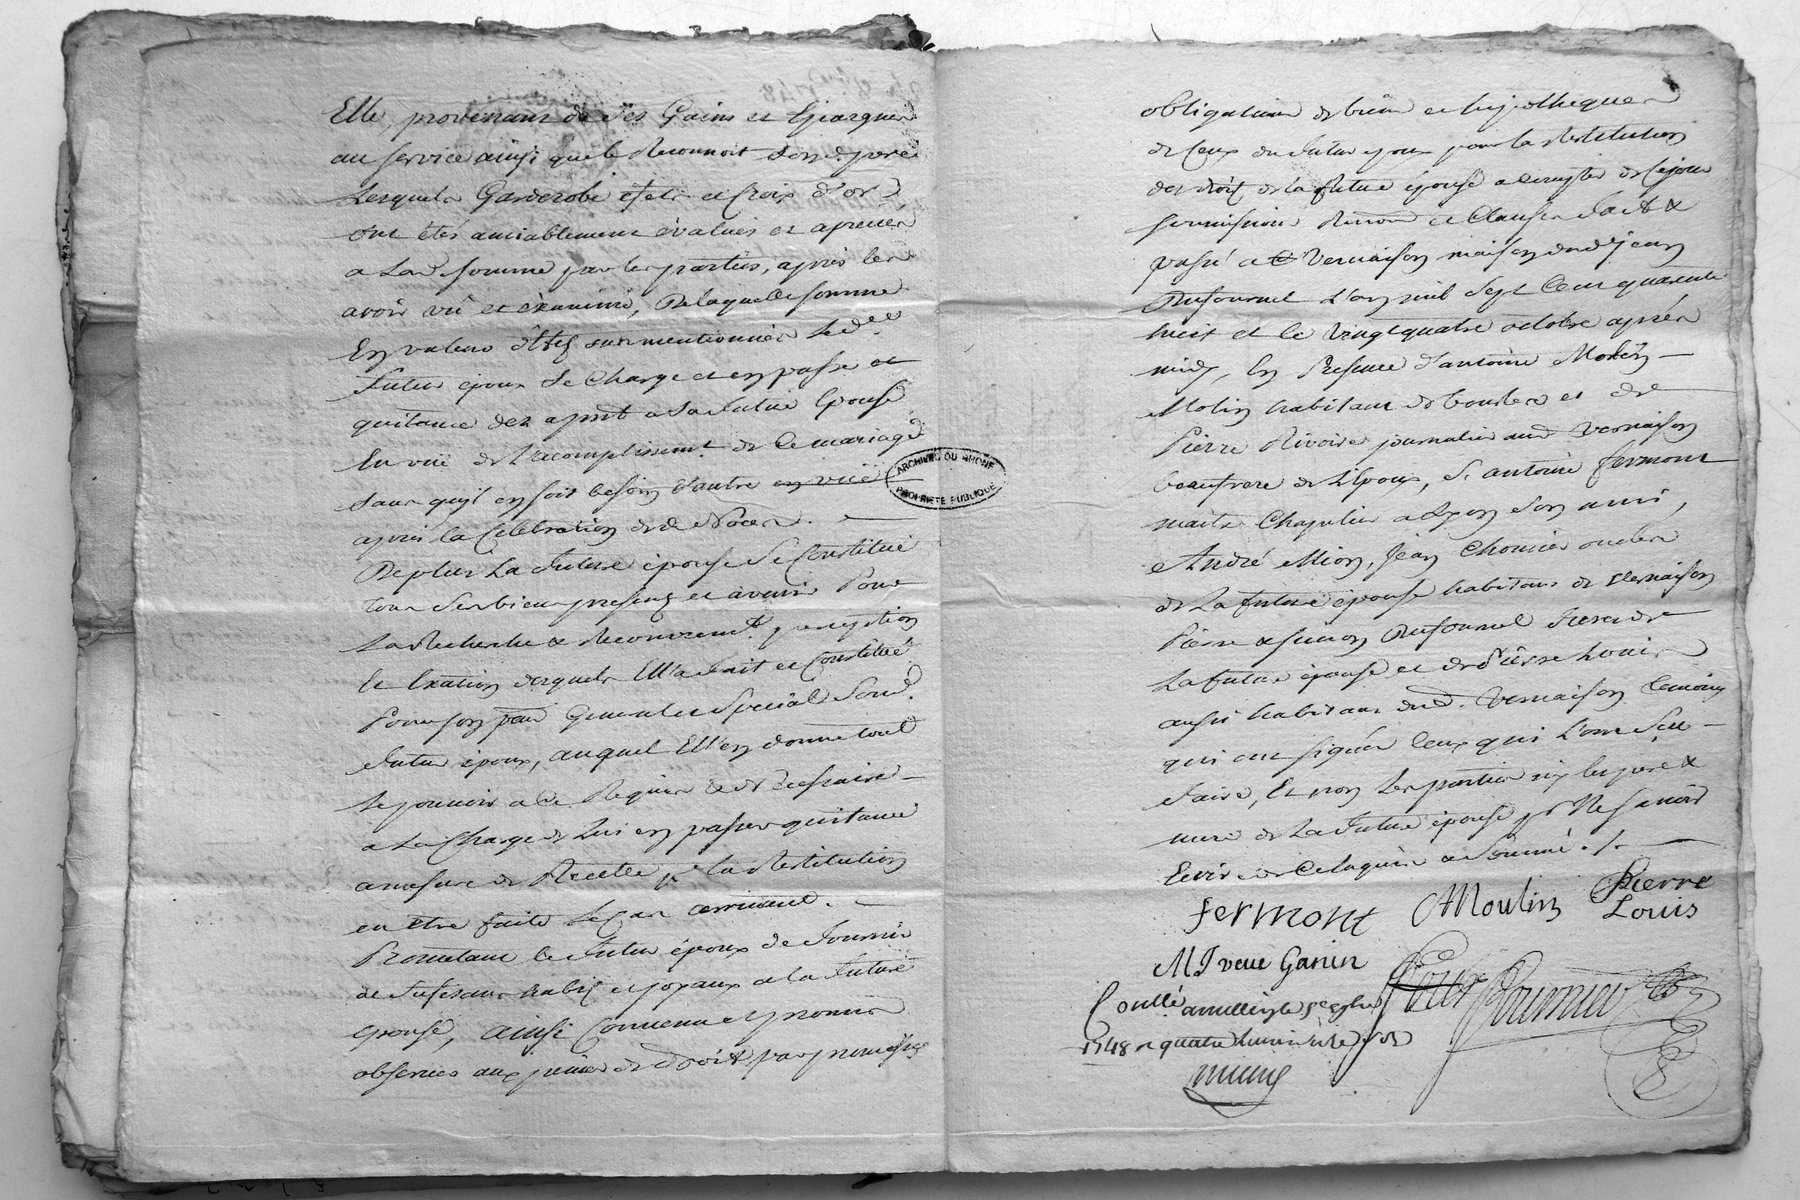 Elle, provenans de ses Gains et Epargnes
au service ainsi que le Reconnoit son d. pere
Lesquels Garderobe efets et Croix d'or
ont êtés amiablement évalués et aprecies
a La d. somme par les parties, après les
avoir vû et éxaminé, De laquelle somme
En valeur d'éfets susmentionnés Led.
futur époux se Charge et en passe
quitance des a prnt a sa future Epouse
En vüe de l'acomplissemt. de Ce mariage
sans qu'il en soit besoin d'autre
après la Célébration de Noces.
De plus La future épouse se Constitue
tous ses biens presens et avenir Pour
La Recherche & Recouvremt. perception
et Exaction desquels Elle a fait et Constitué
Pour son General et Special Sond.
futur époux, auquel Elle en donne tout
Le pouvoir a ce Requis & Necessaire
a La Charge de Lui en passer quitance
a mesure de Recette pr. la Restitution
en être faite Le Cas arrivant.
Promettant le futur époux de fournir
de sufisans habits et joyaux a la future
épouse, ainsi Convenu et promis
observer aux peines de Droit, par promesses
obligation de biens et hipotheques
de Ceux du futur époux pour la Restitution
des droits de la future épouse a Compter de Cejour
soumissions Renon. et Clauses fait &
passé a Vernaison maison dud. jean
Dufournel L'an mil sept Cent quarante
huit et le vingt quatre octobre après
midy, En Presence d'antoine
Molin habitant de et de
Pierre Rivoire journalier aud. Vernaison
beaufrere de l'Epoux, Sr. antoine fermont
maitre Chapelier a Lyon son ami,
André Mion, Jean Chomier oncles
de La future épouse habitans de Vernaison
Pierre & simon Dufournel freres de
La future épouse et de Pierre Louis
aussi habitans dud. Vernaison temoins
qui ont signés Ceux qui L'ont sçu
faire, Et non Les parties ny les pere &
mere de La future épouse pr. Ne savoir
Ecrire de Ce Enquis & sommé ./.
fermont Moulin Pierre
Louis
MJ veue Ganin
Conllé
1748